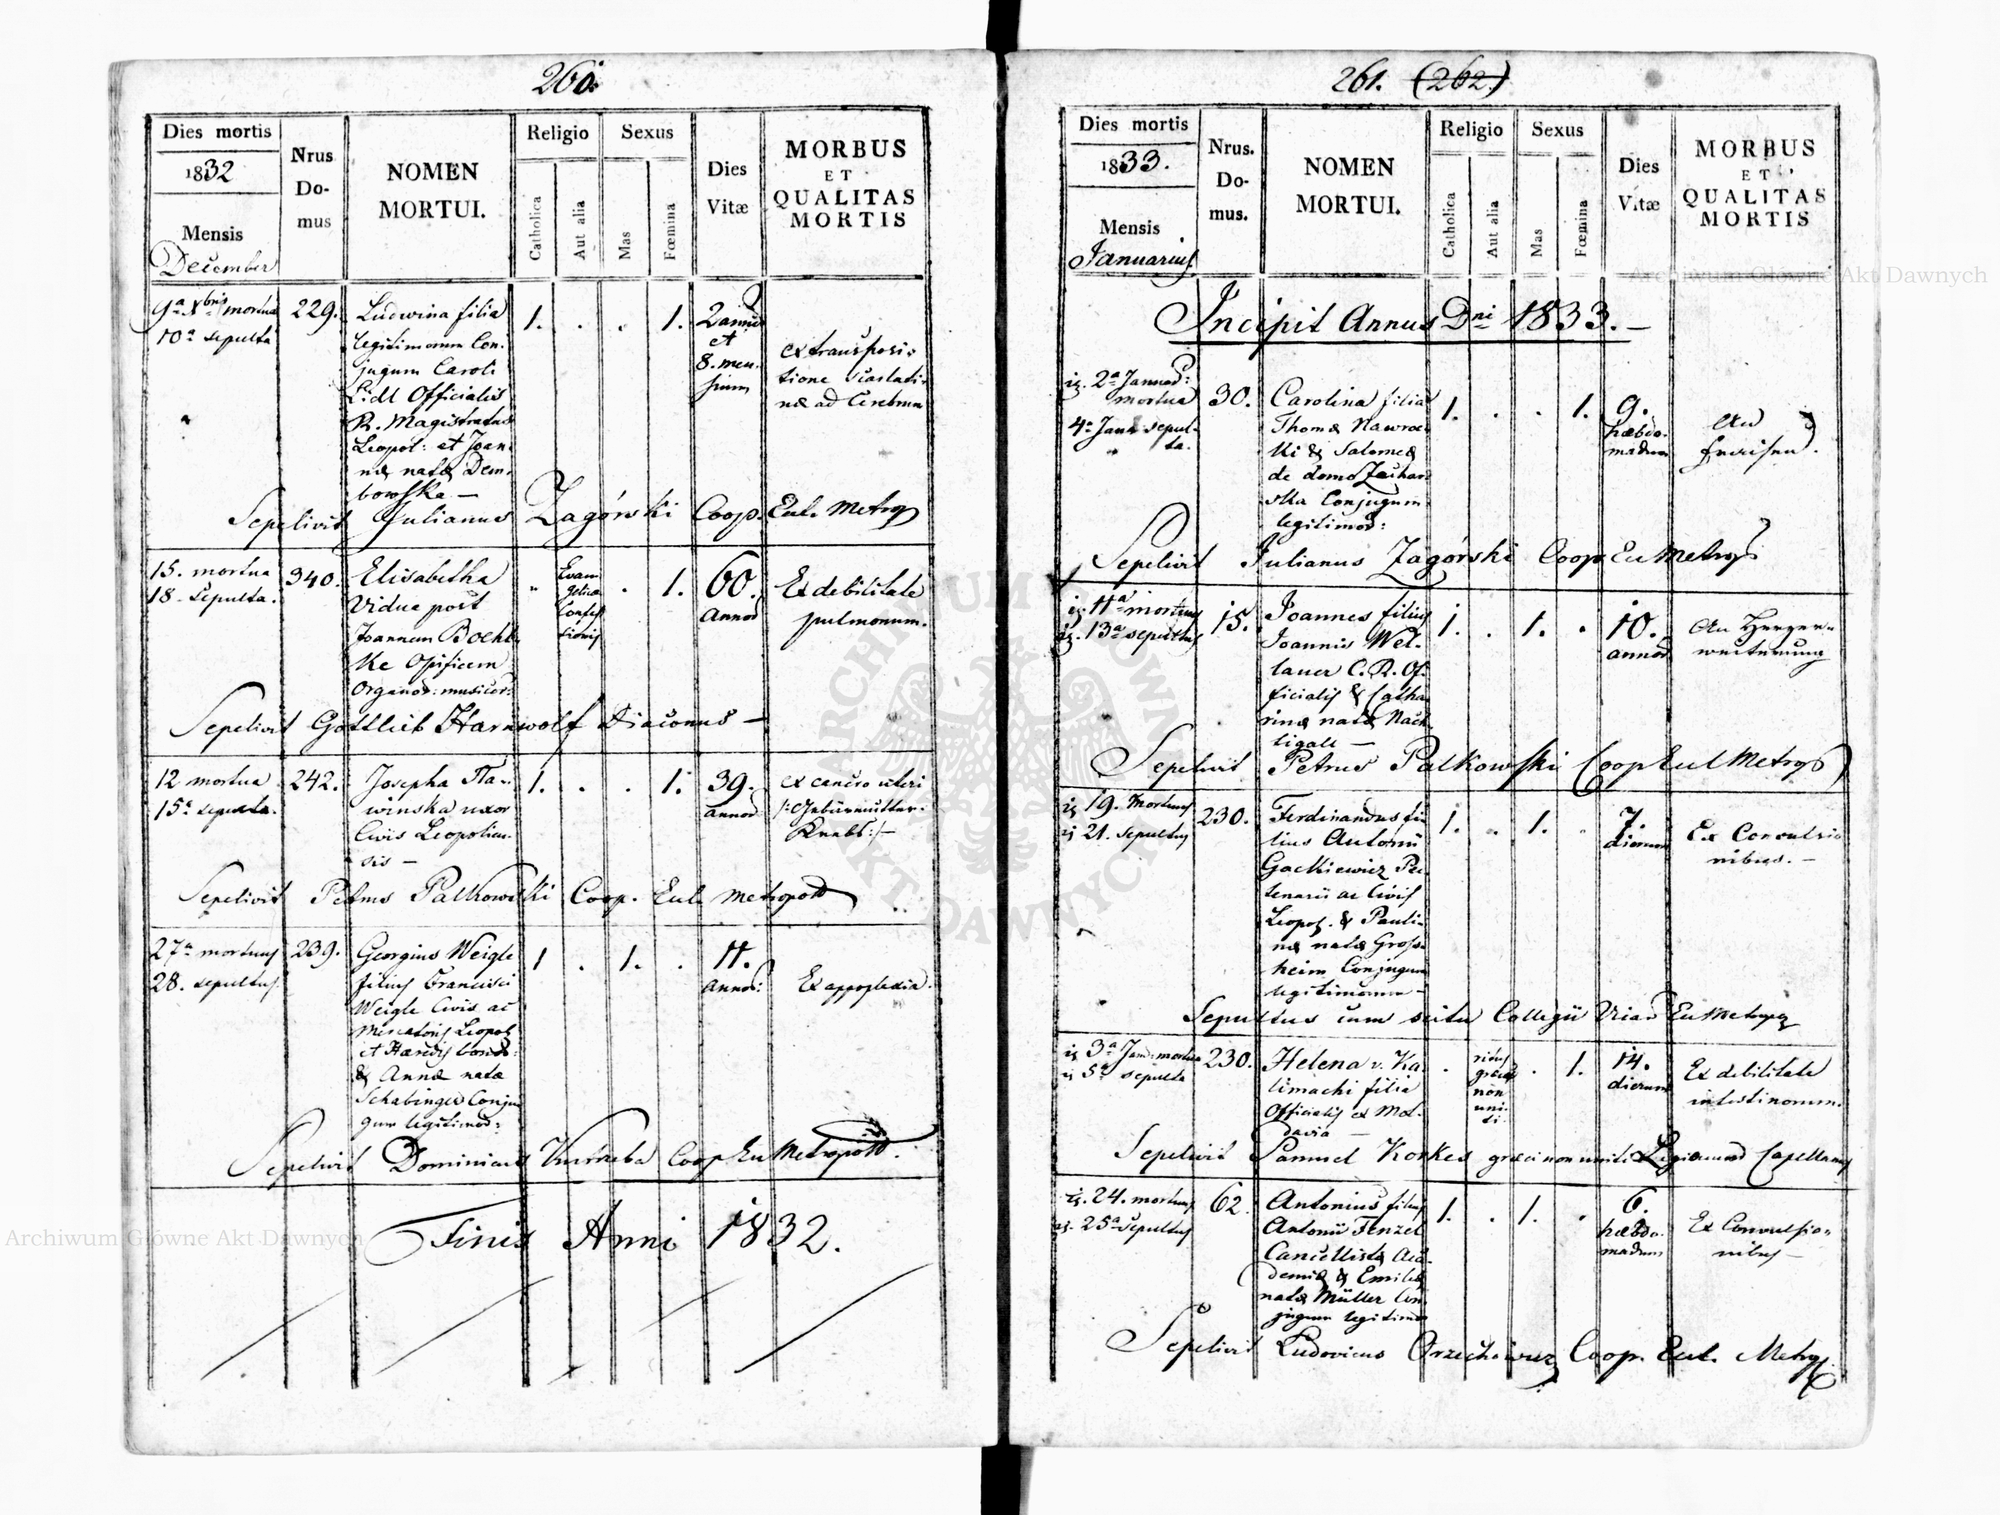 260.
Dies mortis
1832
Mensis
December
Nrus
Do-
mus
NOMEN
MORTUI.
Religio
Catholica
Aut alia
Sexus
Mas
Fœmina
Dies
Vitæ
MORBUS
ET
QUALITAS
MORTIS
9a Xbris mortua
10a sepulta
229.
Ludwina filia
legitimorum Con-
jugum Caroli
Lidl Officialis
R. Magistratus
Leopol: et Joan-
næ natæ Dem-
bowska —
1. . . 1.
2 annor
et
8. men-
sium
ex transposi-
tione scarlati-
næ ad Cerebrum
Sepelivit Julianus Zagórski Coop. Eccl. Metrop
15. mortua
18. sepulta.
340.
Elisabetha
Vidua post
Joannem Boehl-
ke Opificem
Organor: musicor:
Evan-
gelicæ
Confes-
sionis
. 1.
60.
Annor
Ex debilitate
pulmonum.
Sepelivit Gottlieb Harnwolf Diaconus —
12 mortua
15a sepulta.
242.
Josepha Pla-
winska uxor
Civis Leopolien-
sis —
1. . . 1.
39.
annor
ex cancro uteri
Sepelivit Petrus Palkowski Coop. Eccl. Metropolit
27a mortuus
28. sepultus
239.
Georgius Weigle
filius Francisci
Weigle Civis ac
Mercatoris Leopol
et Hæredis bonor:
& Annæ natæ
Schabinger Conju-
gum legitimor:
1 . 1. .
11.
Annor:
Ex apoplexia.
Sepelivit Dominicus Kurzeba Coop Ecc Metropolit.
Finis Anni 1832.
261. (262.)
Dies mortis
1833.
Mensis
Januarius
Nrus.
Do-
mus.
NOMEN
MORTUI.
Religio
Catholica
Aut alia
Sexus
Mas
Fœmina
Dies
Vitæ
MORBUS
ET
QUALITAS
MORTIS
Incipit Annus Dni 1833. —
2a Januar:
mortua
4a Janu sepul-
ta.
30.
Carolina filia
Thomæ Nawroc-
ki & Salomeæ
de domo Zachar-
ska Conjugum
legitimor:
1. . . 1.
9.
hæbdo-
madum
An
Fraisen.
Sepelivit Julianus Zagórski Coop Ec Metrop
11a mortuus
13a sepultus
15.
Joannes filius
Joannis Wel-
lauer C. R. Of-
ficialis & Catha-
rinæ natæ Nach-
tigall —
1. . 1. .
10.
annor
An Herzer-
weiterung
Sepelivit Petrus Palkowski Coop Eccl Metrop
19. mortuus
21. sepultus
230.
Ferdinandus fi-
lius Antonii
Gackiewicz Pec-
tenarii ac Civis
Leopol. & Pauli-
næ natæ Gross-
heim Conjugum
legitimorum —
1. . 1. .
7.
dierum
Ex Convulsio
nibus. —
Sepultus cum scitu Collegii Vicar Ec Metrop
3a Jan: mortua
5a sepulta
230.
Helena v. Ka-
limachi filia
Officialis ex Mol-
davia —
. ritus
græci
non
uni-
ti. . 1.
14.
dierum
Ex debilitate
intestinorum.
Sepelivit Samuel Korkes græci non uniti Legionum Capellanus
24. mortuus
25a sepultus
62.
Antonius filius
Antonii Fenzel
Cancellistæ Aca-
demiæ & Emiliæ
natæ Müller Con-
jugum legitimor
1. . 1. .
6.
hæbdo-
madum
Ex Convulsio-
nibus —
Sepelivit Ludovicus Orzechowicz Coop. Eccl. Metrop.
Archiwum Główne Akt Dawnych
Archiwum Główne Akt Dawnych
ARCHIWUM GŁÓWNE AKT DAWNYCH